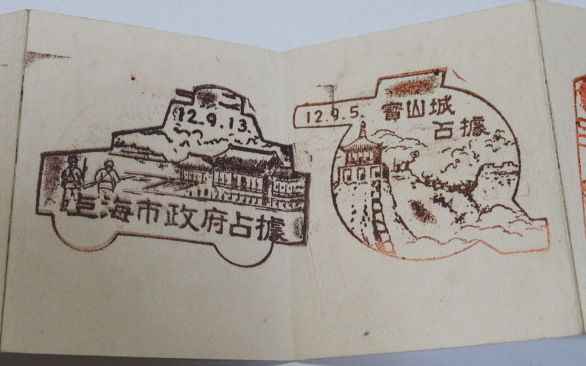 12.9.13.
上海市政府占據
12.9.5.
寳山城
占據